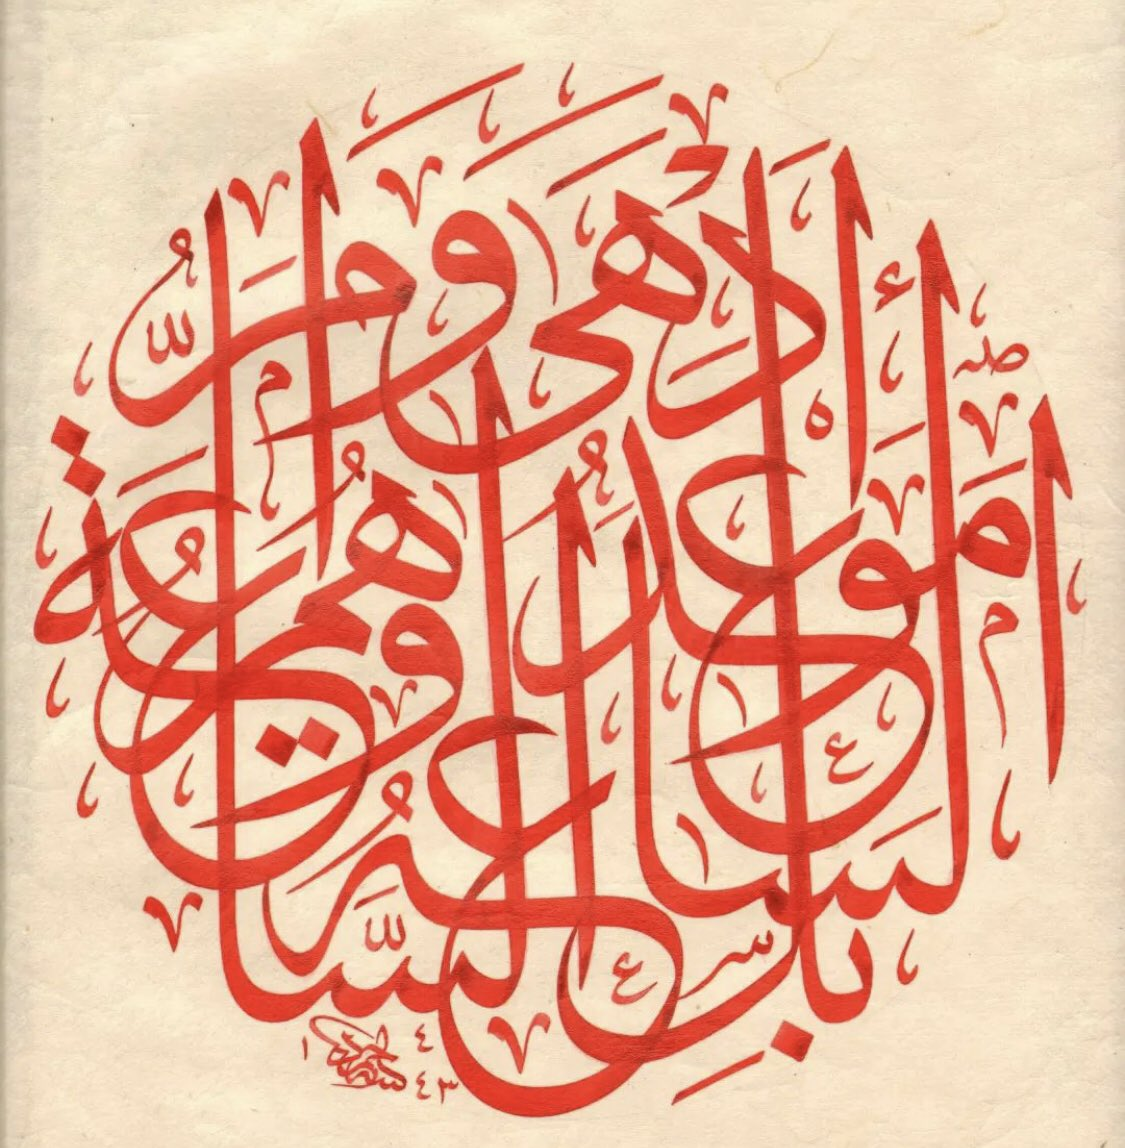 بَلِ السَّاعَةُ مَوْعِدُهُمْ وَالسَّاعَةُ أَدْهَىٰ وَأَمَرُّ